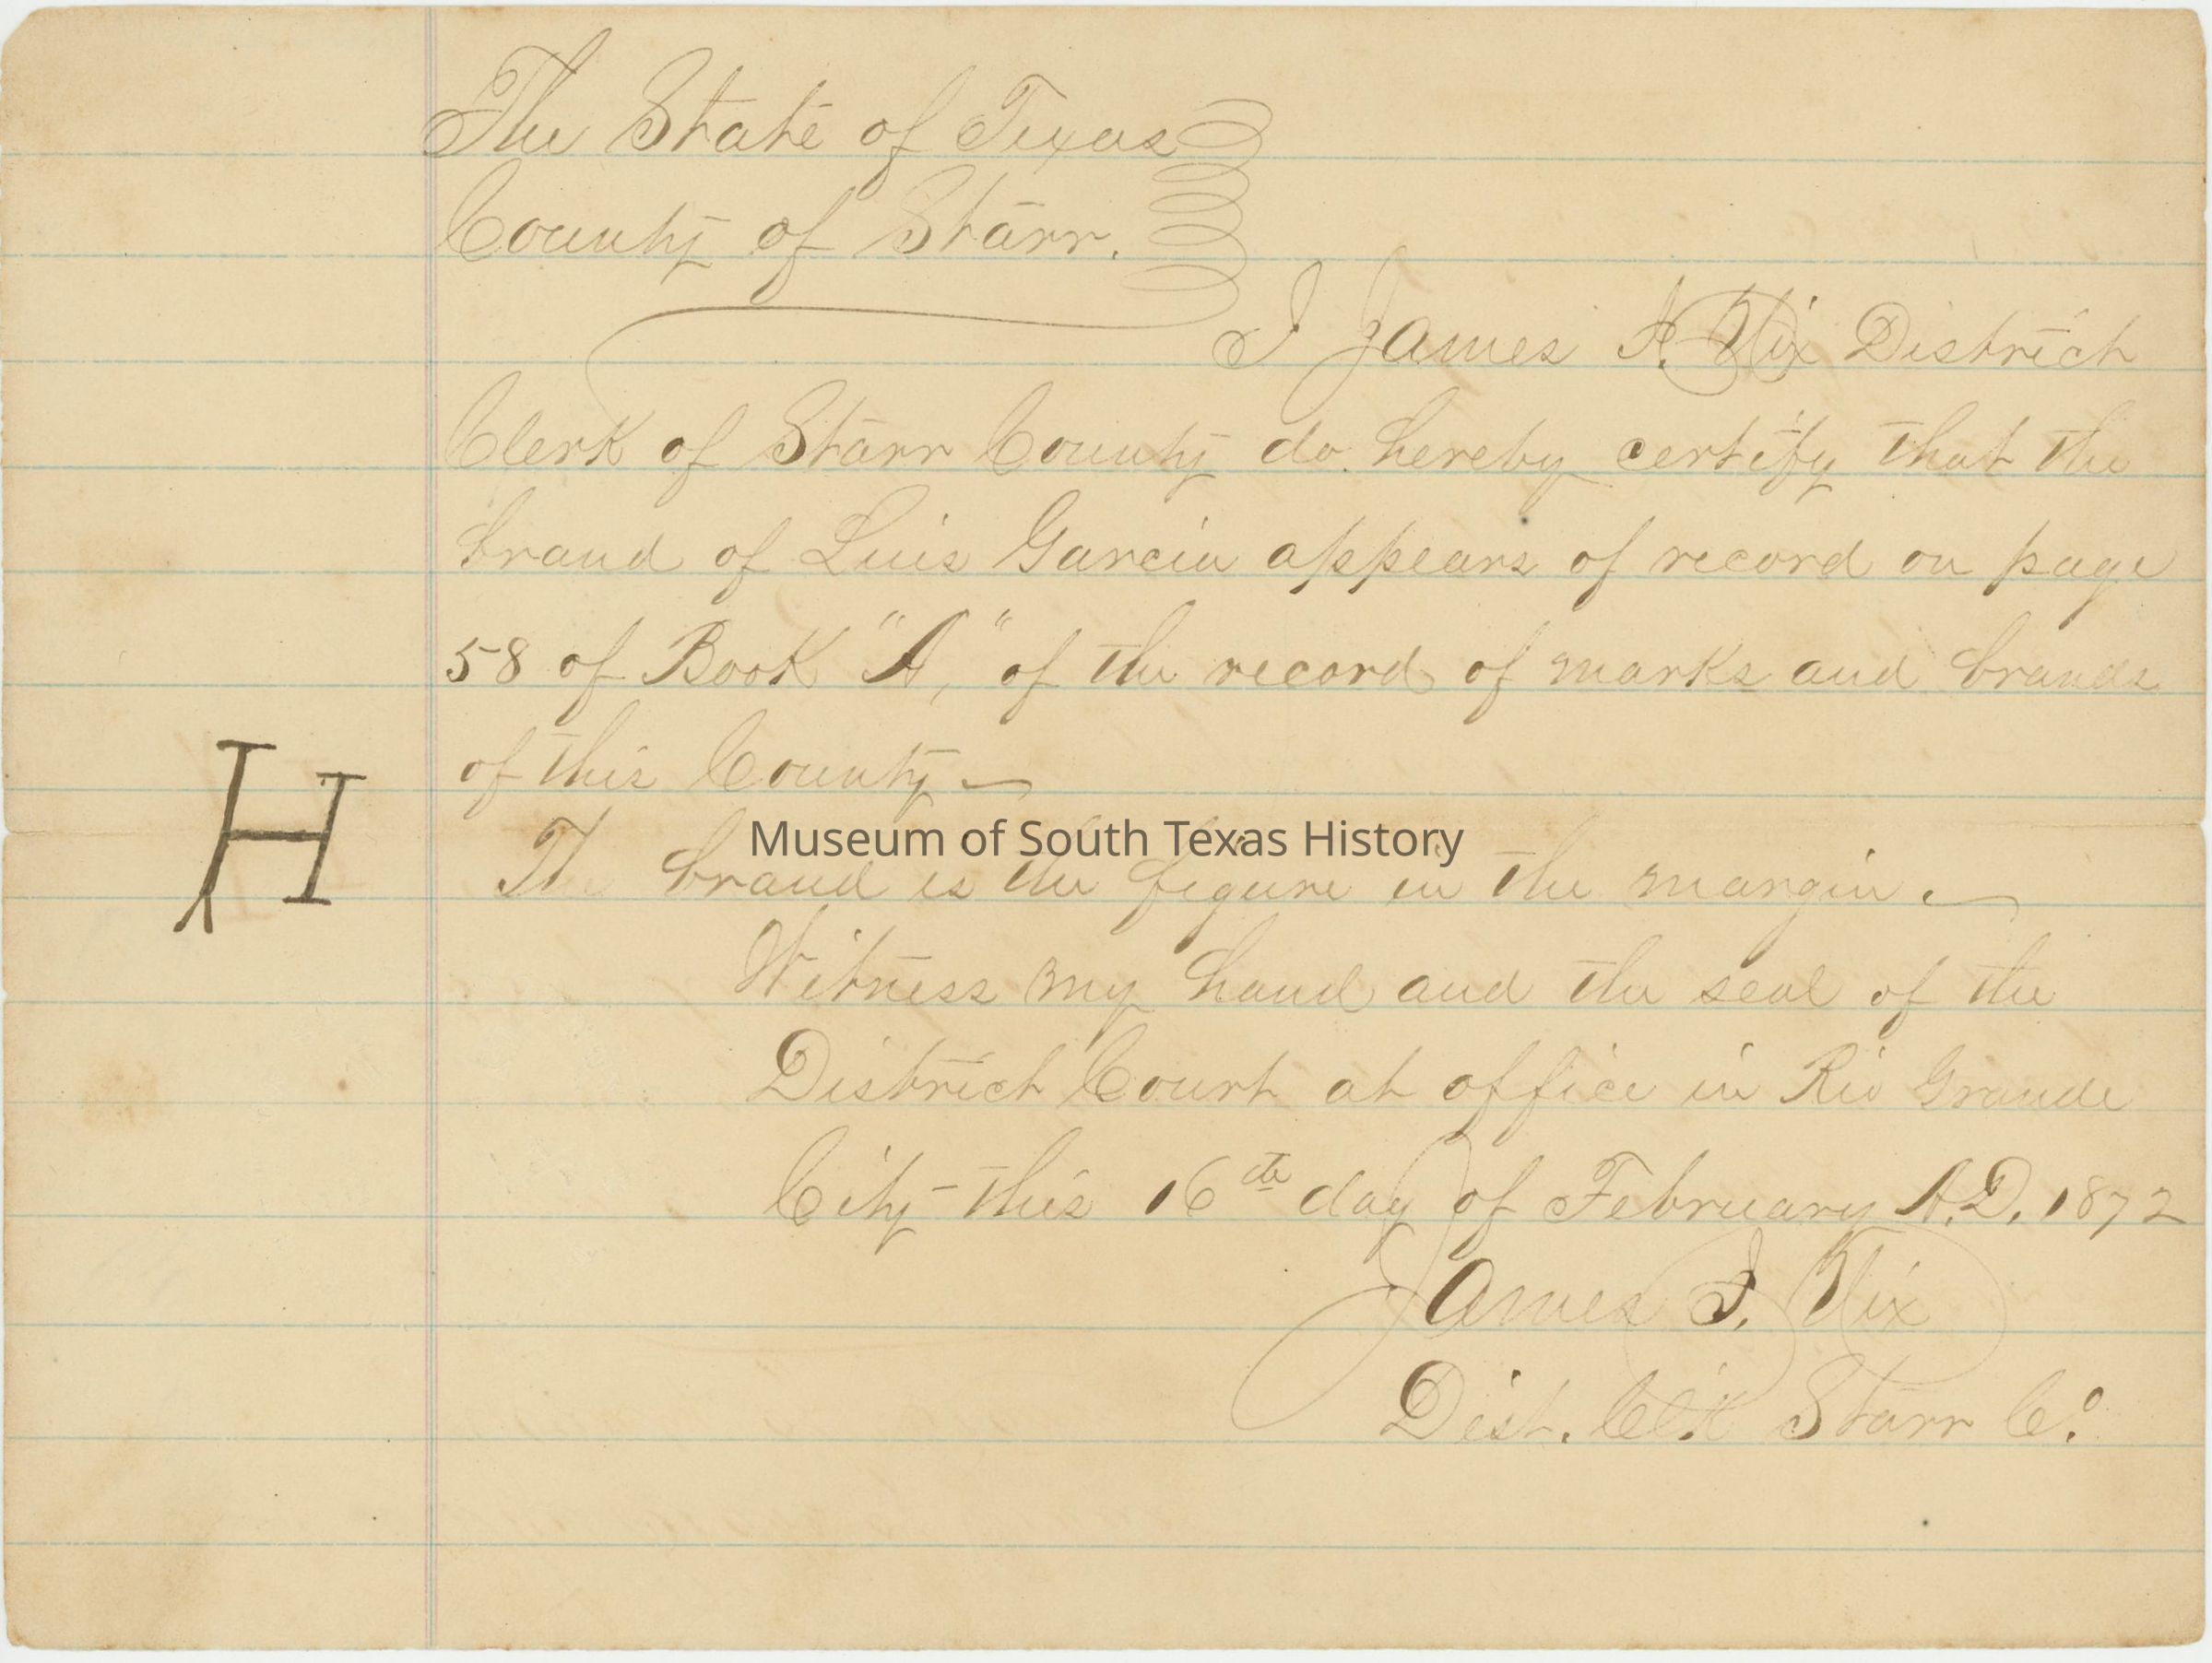 The State of Texas
County of Starr.
I James J. Nix District
Clerk of Starr County do hereby certify that the
brand of Luis Garcia appears of record on page
58 of Book "A," of the record of marks and brands
of this County
H
Museum of South Texas History
The brand is the figure in the margin.
Witness my hand and the seal of the
District Court at office in Rio Grande
City this 16th day of February A.D. 1872
James J. Nix
Dist. Cl'k Starr Co.